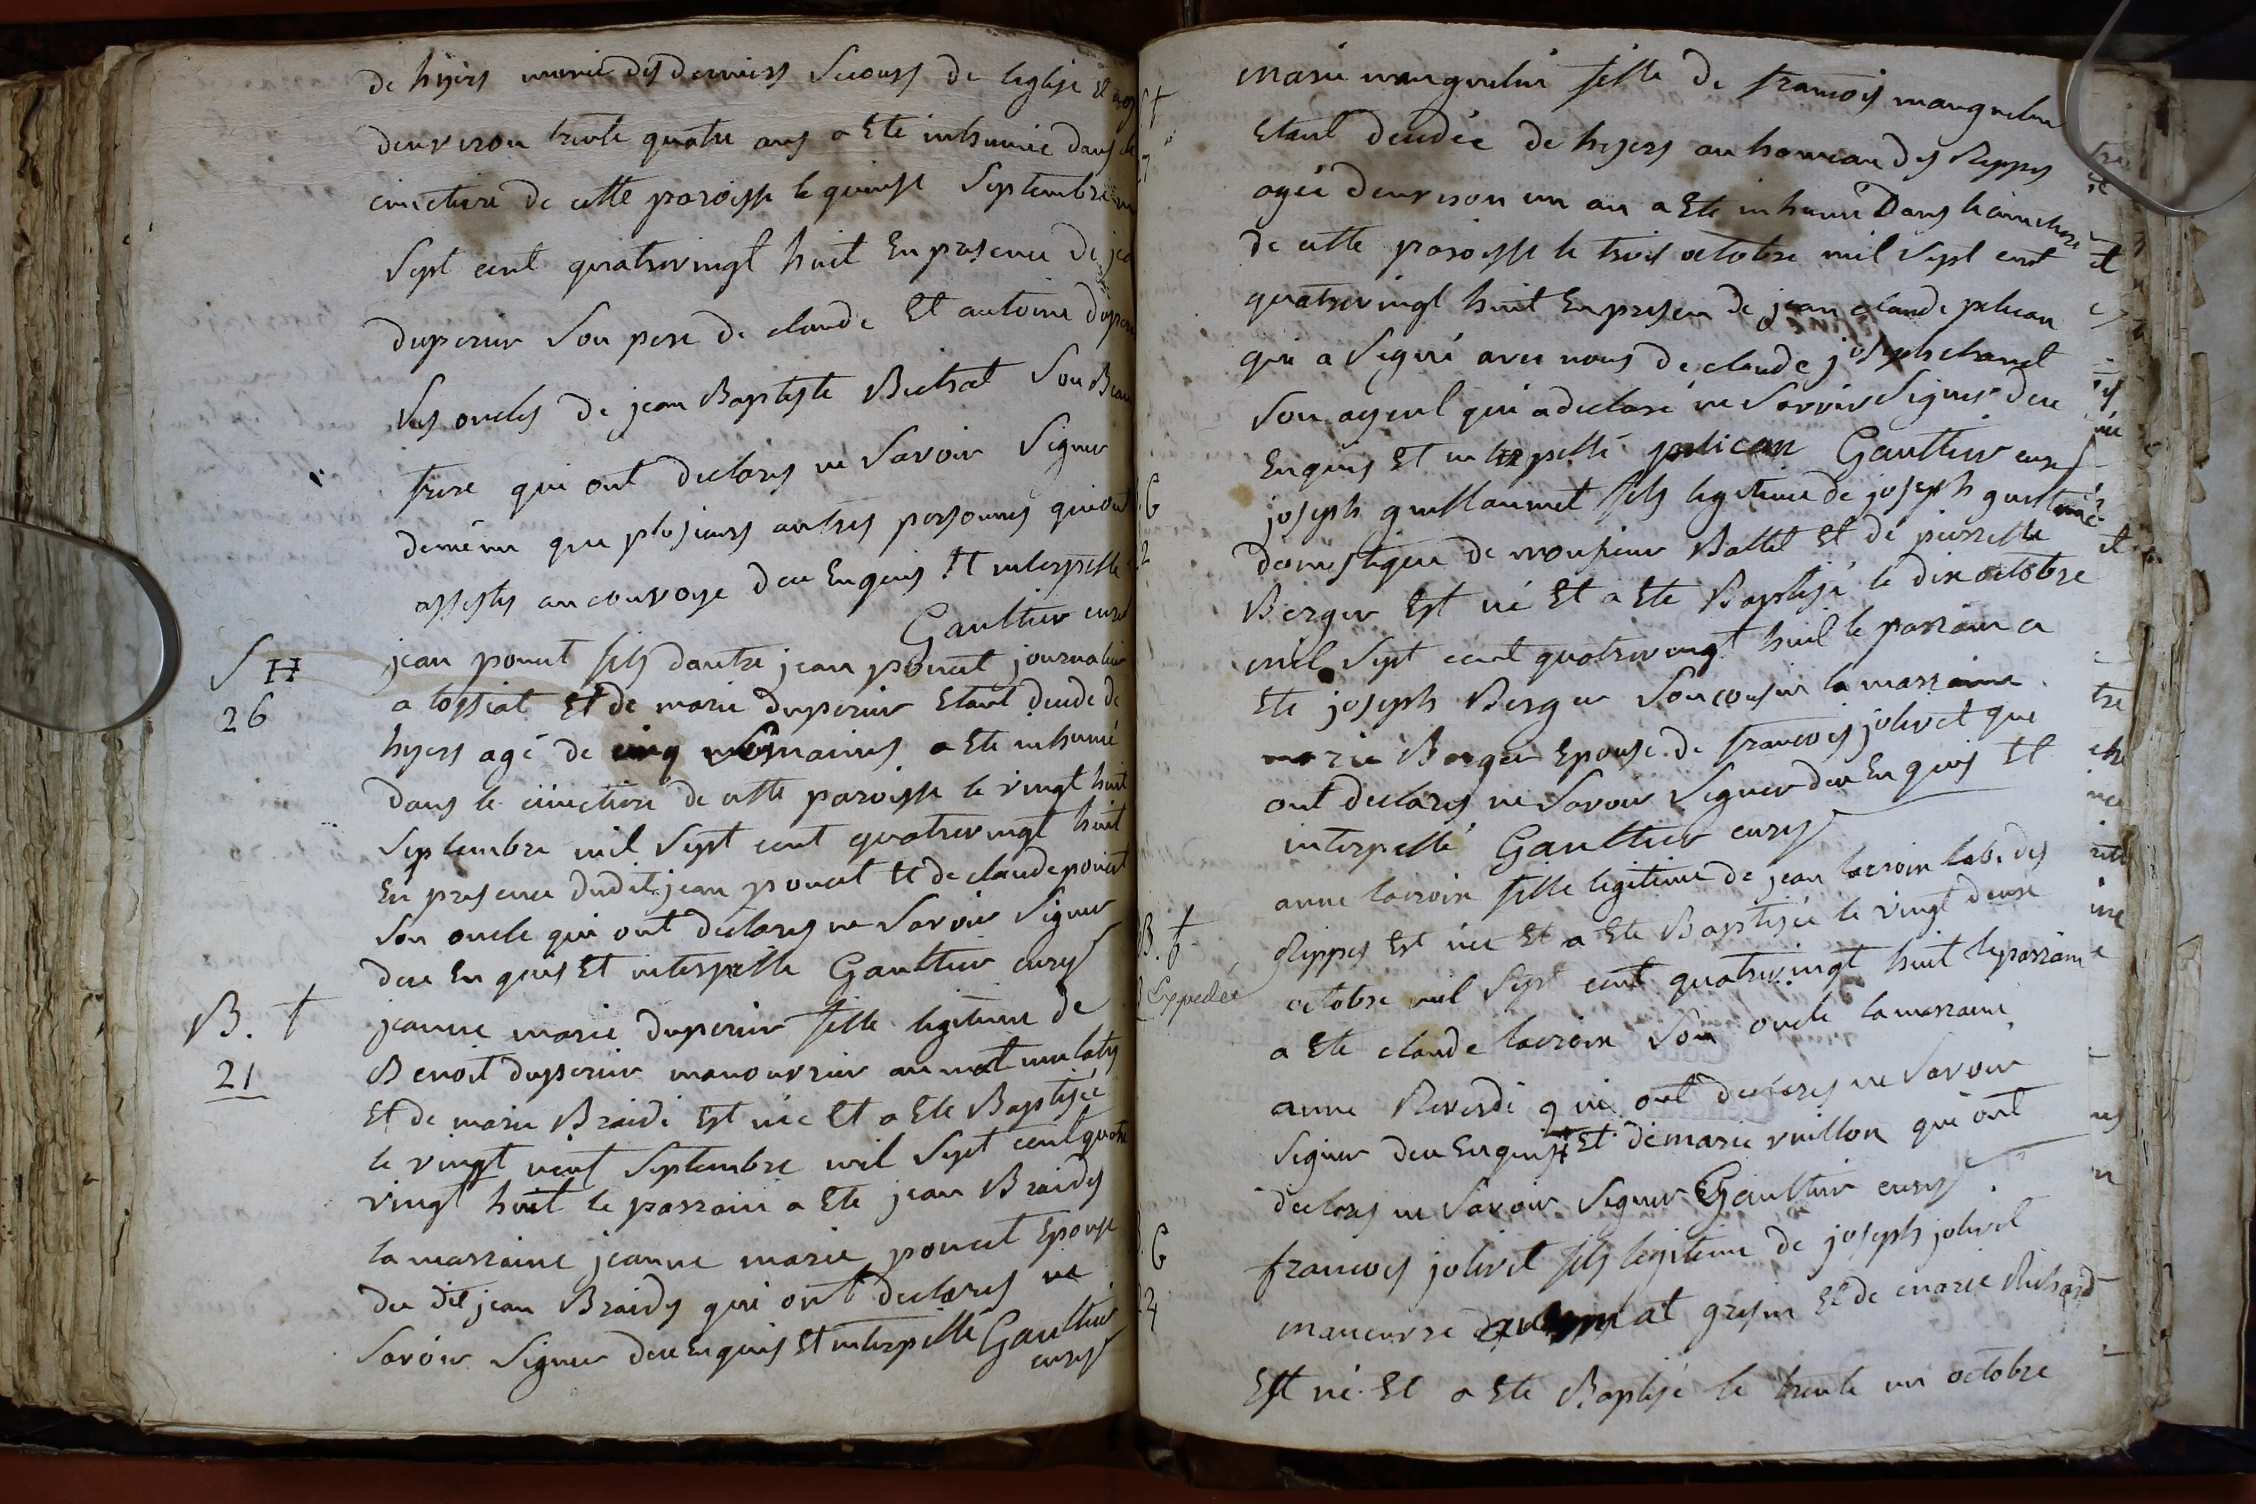 de hyers munie des derniers secours de leglise et
denviron trente quatre ans a Ete inhumée dans le
cimetiere de cette paroisse le quinse Septembre
Sept cent quatrevingt huit En presence de
duperier Son pere de claude Et antoine
Ses oncles de jean Baptiste Bichat Son
frere qui ont declarés ne Savoir Signer
deméme que plusieurs autres personnes qui ont
assistés au convoye deu Enquis Et interpellé
Gaultier curé
S ++
26
jean poncet fils dautre jean poncet journalier
a tossiat Et de marie duperier Etant decede de
hyers agé de cinq semaines a Ete inhumé
dans le cimetiere de cette paroisse le vingt huit
Septembre mil Sept cent quatrevingt huit
En presence dudit jean poncet et de claude poncet
Son oncle qui ont declarés ne Savoir Signer
deu Enquis Et interpellé Gaultier curé
B. +
21
jeanne marie duperier fille legitime de
Benoit duperier manouvrier au mat
Et de marie Braidi Est née Et a Ete Baptisée
le vingt neuf Septembre mil Sept cent quatre
vingt huit le parrain a Ete jean Braidy
la marraine jeanne marie poncet Epouse
du dit jean Braidy qui ont declarés ne
Savoir Signer deu Enquis Et interpellé Gaultier
curé
marie manguelin fille de francois manguelin
Etant decedée de hyers au hameau des Rippes
agée denviron un an a Ete inhumé Dans le cimetiere
de cette paroisse le trois octobre mil Sept cent
quatrevingt huit En presen de jean claude pelican
qui a Signé avec nous de claude joseph chanel
Son ayeul qui a declaré ne Savoir Signer deu
Enquis Et interpellé pelican Gaultier curé
joseph guillaumet fils legitime de joseph
domestique de monsieur Battet Et de pierrette
Berger Est né Et a Ete Baptisé le dix octobre
mil Sept cent quatrevingt huit le parrain a
Ete joseph Berger Son cousin la marraine
marie Berger Epouse de francois jolivet que
ont declarés ne Savoir Signer deu Enquis Et
interpellé Gaultier curé
B. +
Expediée
anne lacroix fille legitime de jean lacroix lab. des
Rippes Est née Et a Ete Baptisée le vingt deuse
octobre mil Sept cent quatrevingt huit le parrain
a Ete claude lacroix Son oncle la marraine
anne Reverdi qui ont declarés ne Savoir
Signer deu Enquis Et de marie vuillon qui ont
declarés ne Savoir Signer Gaultier curé
francois jolivet fils legitime de joseph jolivet
maneuvre mat gresin Et de marie Richard
Est né Et a Ete Baptisé le trente un octobre